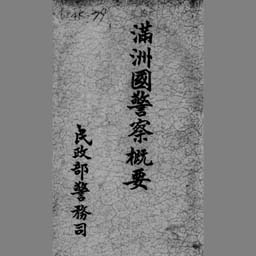 滿洲國警察概要
民政部警務司